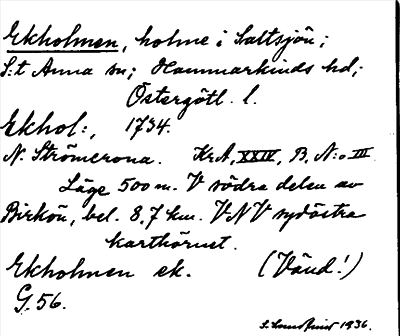 Ekholmen, holme i Saltsjön;
S:t Anna sn; Hammarkinds hd;
Östergötl. l.
Ekhol:, 1734.
N. Strömcrona. KrA, XXIV, B. N:o III
Läge 500 m. V södra delen av
Birkön, bel. 8,7 km. VNV sydöstra
karthörnet.
Ekholmen ek. (Vänd!)
G. 56.
1936.